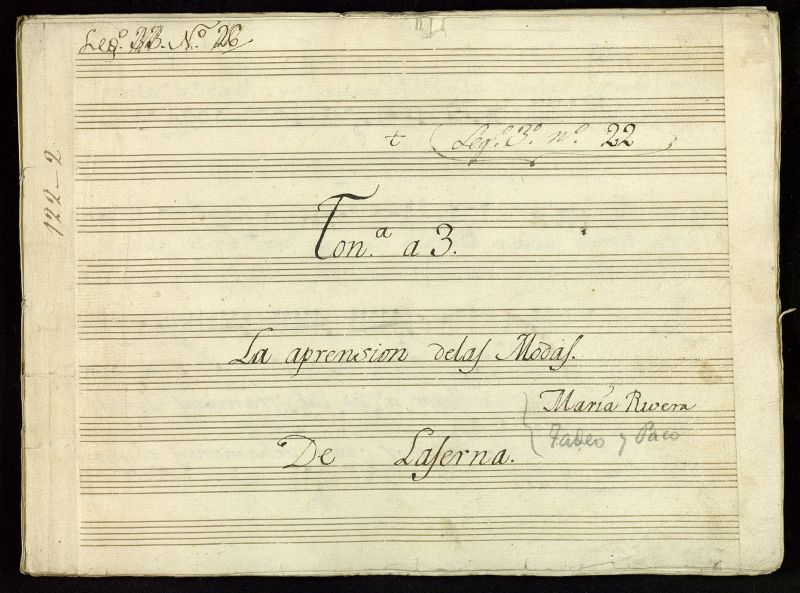 Leg.º 33. N.º 26
+ Leg.º 3.º n.º 22
122-2
Ton.ª a 3.
La aprension delas Modas.
María Rivera
Tadeo y Paco
De Laserna.